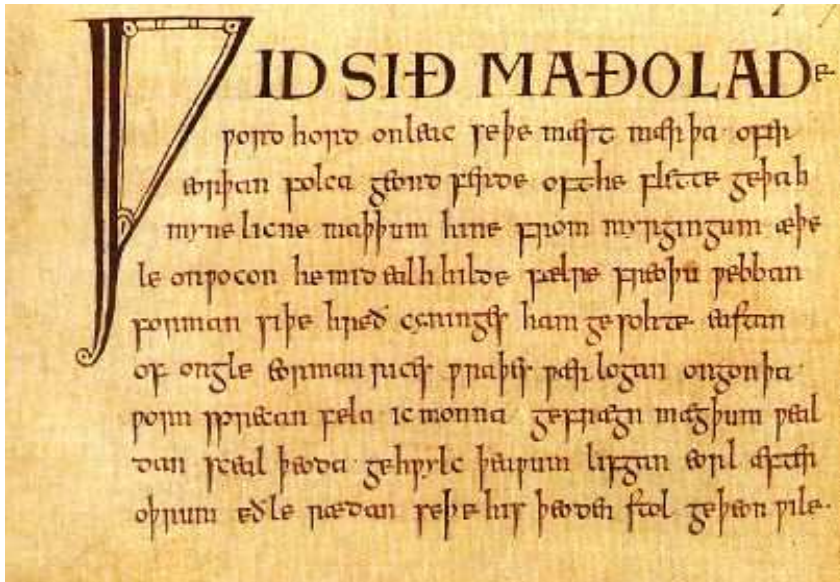 ǷID SIÐ MAÐOLADE
ƿord hord onleac seþe mæst mærþa ofer
eorþan folca geond ferde oft he flette geþah
myne licne maþþum hine from myrgingum æþe
le onƿocon he mid ealh hilde fælre freoþu ƿebban
forman siþe hreð cyninges ham gesohte eastan
of ongle eorman rices ƿraþes ƿær logan ongon þa
ƿorn sprecan fela ic monna gefrægn mægþum ƿeal
dan sceal þeoda gehƿylc þeaƿum lifgan eorl æfter
oþrum eðle rædan seþe his þeoden stol geþeon ƿile·